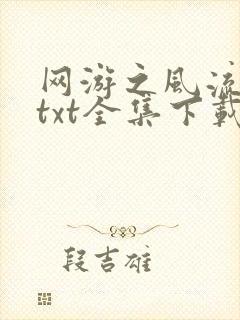 网游之风流
txt全集下载
段吉雄